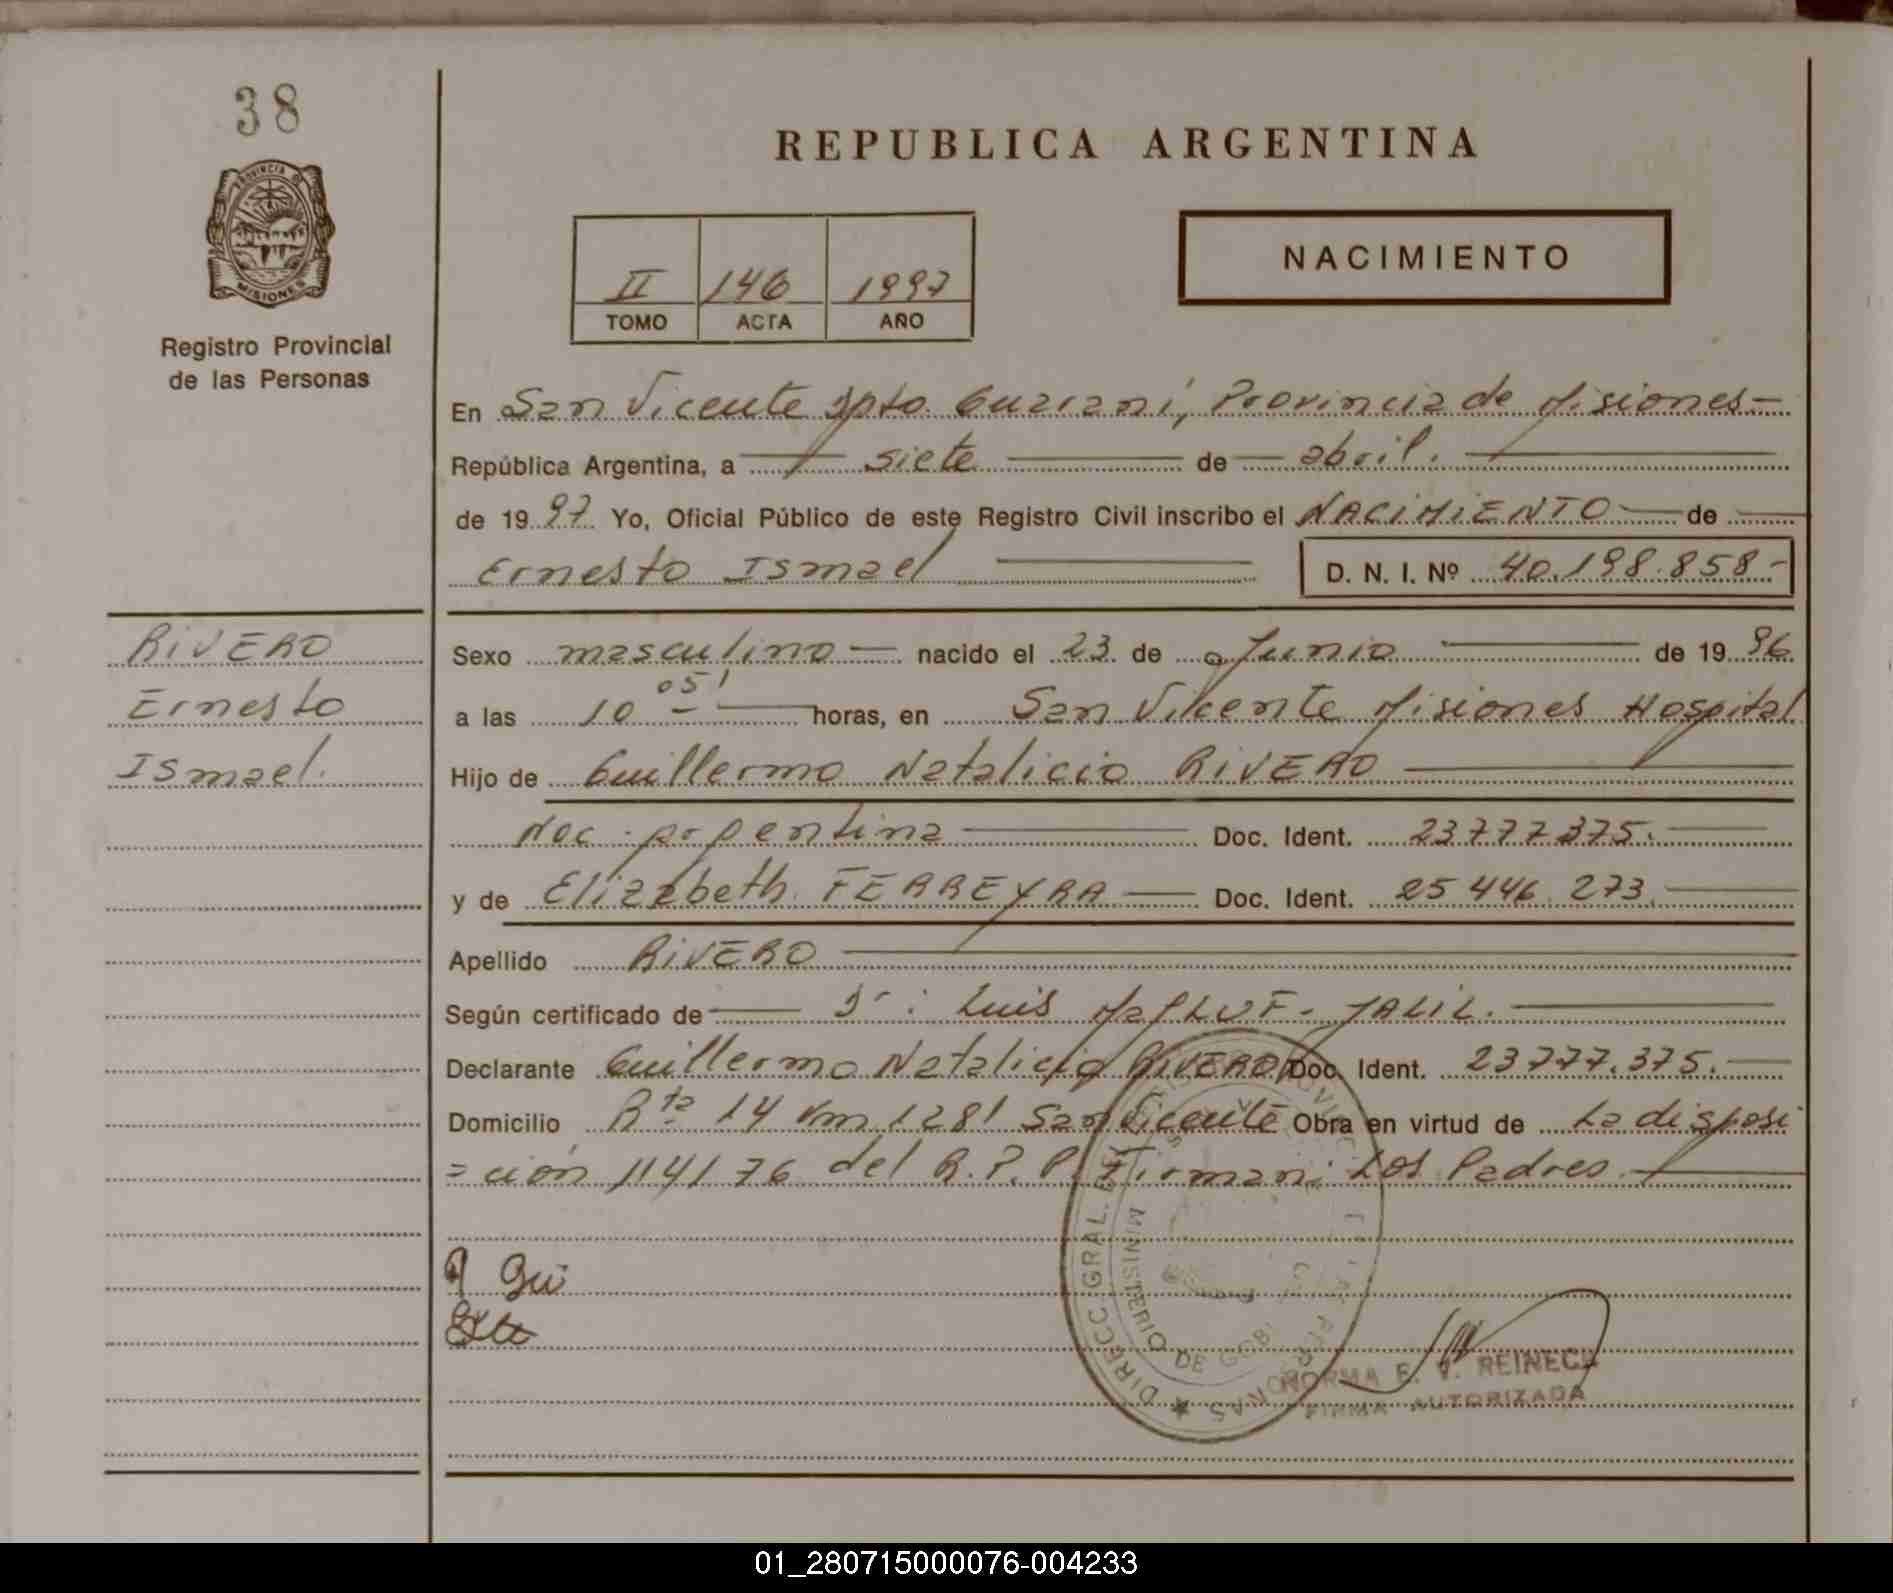 38
PROVINCIA DE
MISIONES
Registro Provincial
de las Personas
REPUBLICA ARGENTINA
II 146 1997
TOMO ACTA AÑO
NACIMIENTO
En San Vicente Dpto. Guaraní, Provincia de Misiones-
República Argentina, a siete de abril.
de 1997 Yo, Oficial Público de este Registro Civil inscribo el NACIMIENTO de
Ernesto Ismael D. N. I. Nº 40.198.858-
RIVERO
Ernesto
Ismael.
Sexo masculino nacido el 23 de Junio de 1996
a las 10 05' horas, en San Vicente Misiones Hospital
Hijo de Guillermo Natalicio RIVERO
Nac. Argentina Doc. Ident. 23777375.
y de Elizabeth FERREYRA Doc. Ident. 25446.273.
Apellido RIVERO
Según certificado de Dr: Luis JALIL.
Declarante Guillermo Natalicio RIVERO Doc. Ident. 23777.375.
Domicilio Rta 14 Km 1281 San Vicente Obra en virtud de La disposi
=ción 114/76 del R.P.P. Firman: Los Padres.
DIRECC. GRAL. DEL REGISTRO PROVINC. DE LAS PERSONAS
MINISTERIO DE GOBI
NORMA E. V. REINECK
FIRMA AUTORIZADA
01_280715000076-004233